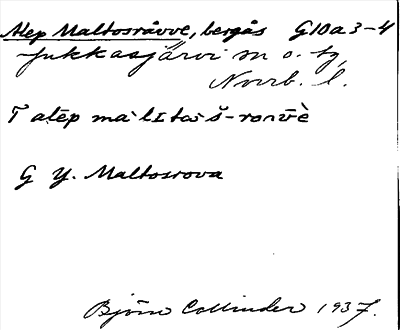 Alep Maltosråvve, bergås G10a3-4
Jukkasjärvi sn o. tg,
Norrb. l.
T alēp mà·lītaš-ronv̄è
G Y. Maltosrova
Björn Collinder 1937.